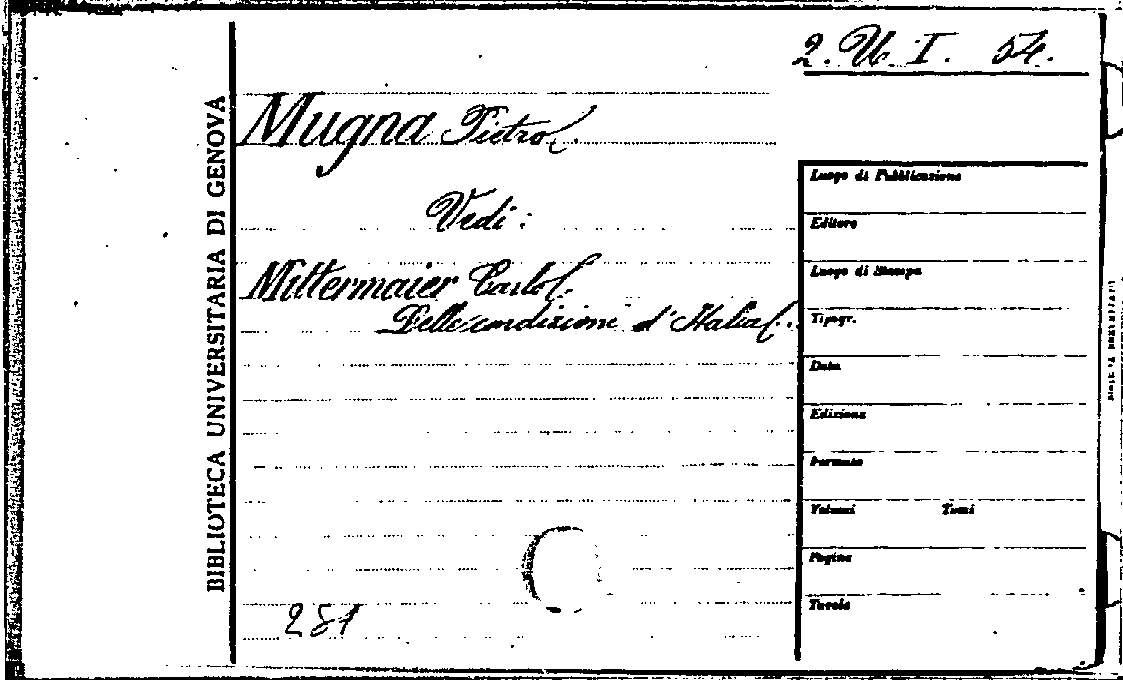 2. U. I. 54.
BIBLIOTECA UNIVERSITARIA DI GENOVA
Mugna Pietro.
Vedi:
Mittermaier Carlo.
Delle condizione d'Italia...
Luogo di Pubblicazione
Editore
Luogo di Stampa
Tipogr.
Data
Edizione
Formato
Volumi Tomi
Pagine
Tavole
281